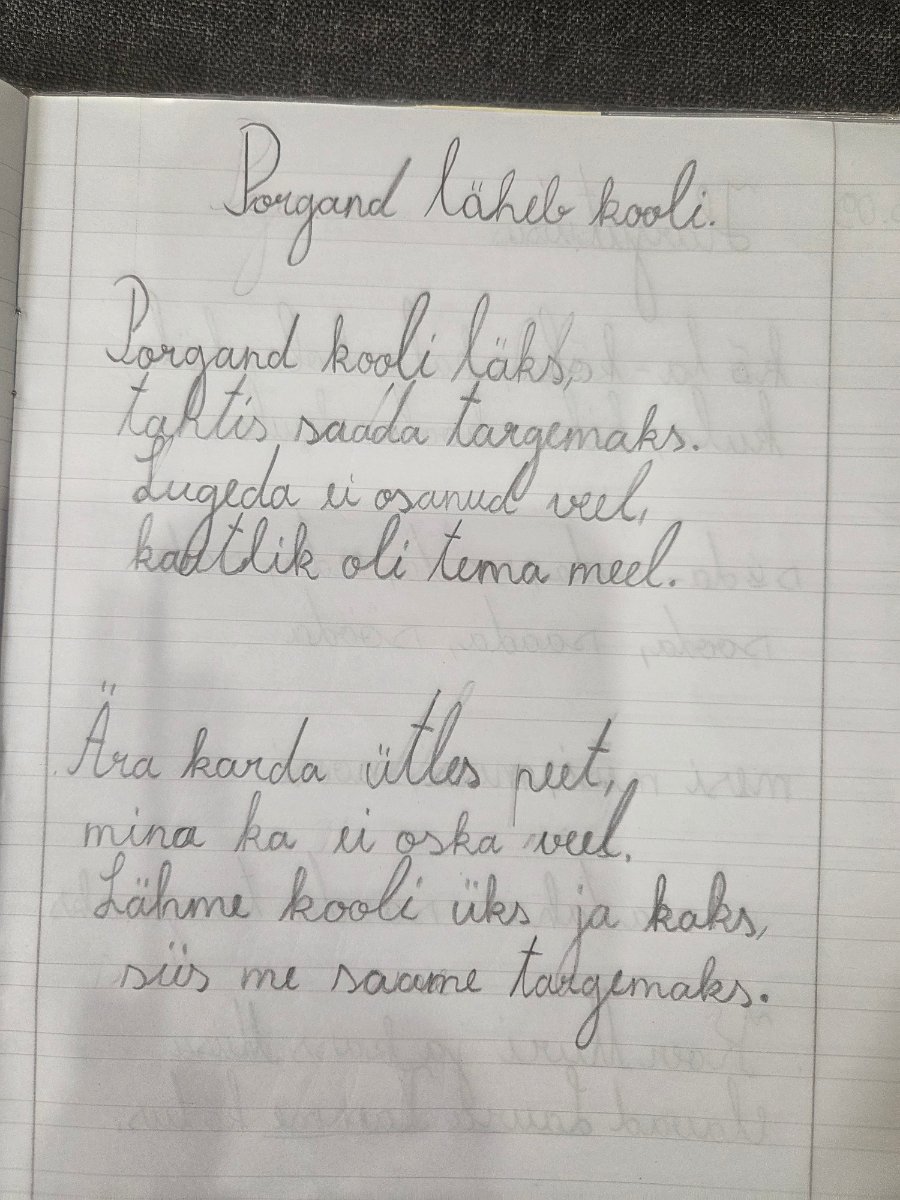 Porgand läheb kooli.
Porgand kooli läks,
tahtis saada targemaks.
Lugeda ei osanud veel,
kartlik oli tema meel.
Ära karda ütles peet,
mina ka ei oska veel.
Lähme kooli üks ja kaks,
siis me saame targemaks.